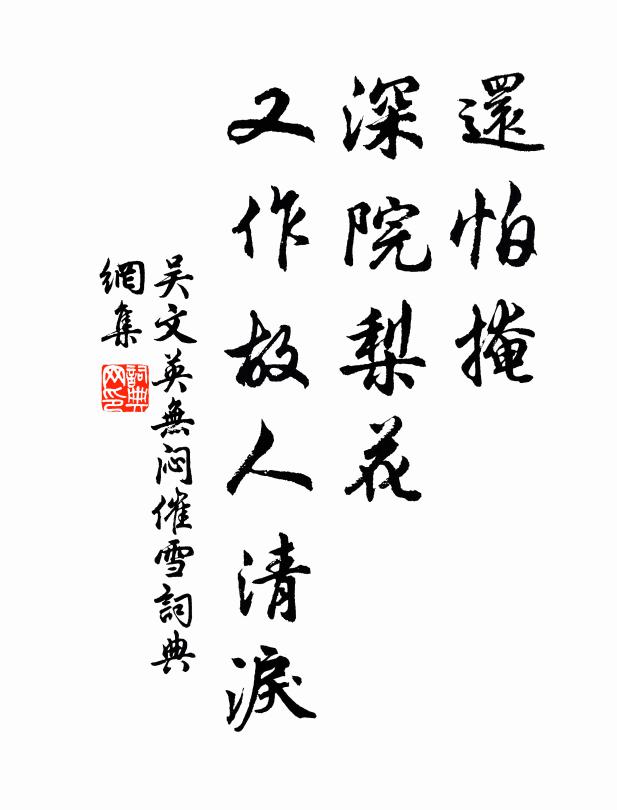 還怕掩
深院梨花
又作故人清淚
吴文英無闷催雪詞典
網集
詞典网印